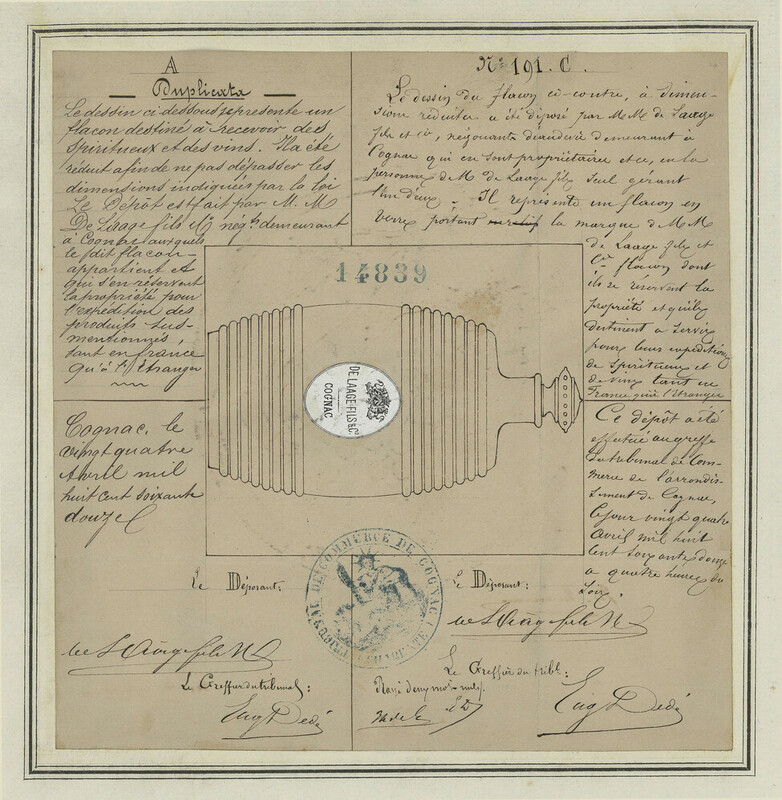 A
Duplicata
Le dessin ci dessous représente un
flacon destiné à recevoir des
Spiritueux et des vins. Il a été
réduit afin de ne pas dépasser les
dimensions indiquées par la loi
Le Dépôt est fait par M. M
De Laage fils & Cie négts demeurant
à Cognac auxquels
le dit flacon
appartient et
qui s'en réservent
la propriété pour
l'expédition des
produits sus-
mentionnés,
tant en france
qu'à l'étranger
Cognac, le
vingt quatre
Avril mil
huit cent soixante
douze
Le Déposant:
de Laage fils & Cie
Le Greffier du tribunal:
Eug Dedé
No 191. C.
Le dessin du flacon ci-contre, à dimen-
sions réduites a été déposé par MM de Laage
fils et Cie, négociants demeurant à
Cognac qui en sont propriétaires et ce, en la
personne de M. de Laage fils seul gérant
l'un d'eux. Il représente un flacon en
verre portant la marque de MM
de Laage fils et
Cie flacon dont
ils se réservent la
propriété et qu'ils
destinent à servir
pour leurs expéditions
de Spiritueux et
de vins tant en
France qu'à l'Etranger
Ce dépôt a été
effectué au greffe
du tribunal de Com-
merce de l'arrondis-
sement de Cognac,
ce jour vingt quatre
avril mil huit
cent soixante douze
à quatre heures du
soir.
Le Déposant:
de Laage fils & Cie
Le Greffier du tribl:
Eug Dedé
14839
DE LAAGE FILS & Co
COGNAC
TRIBUNAL DE COMMERCE DE COGNAC
(CHARENTE)